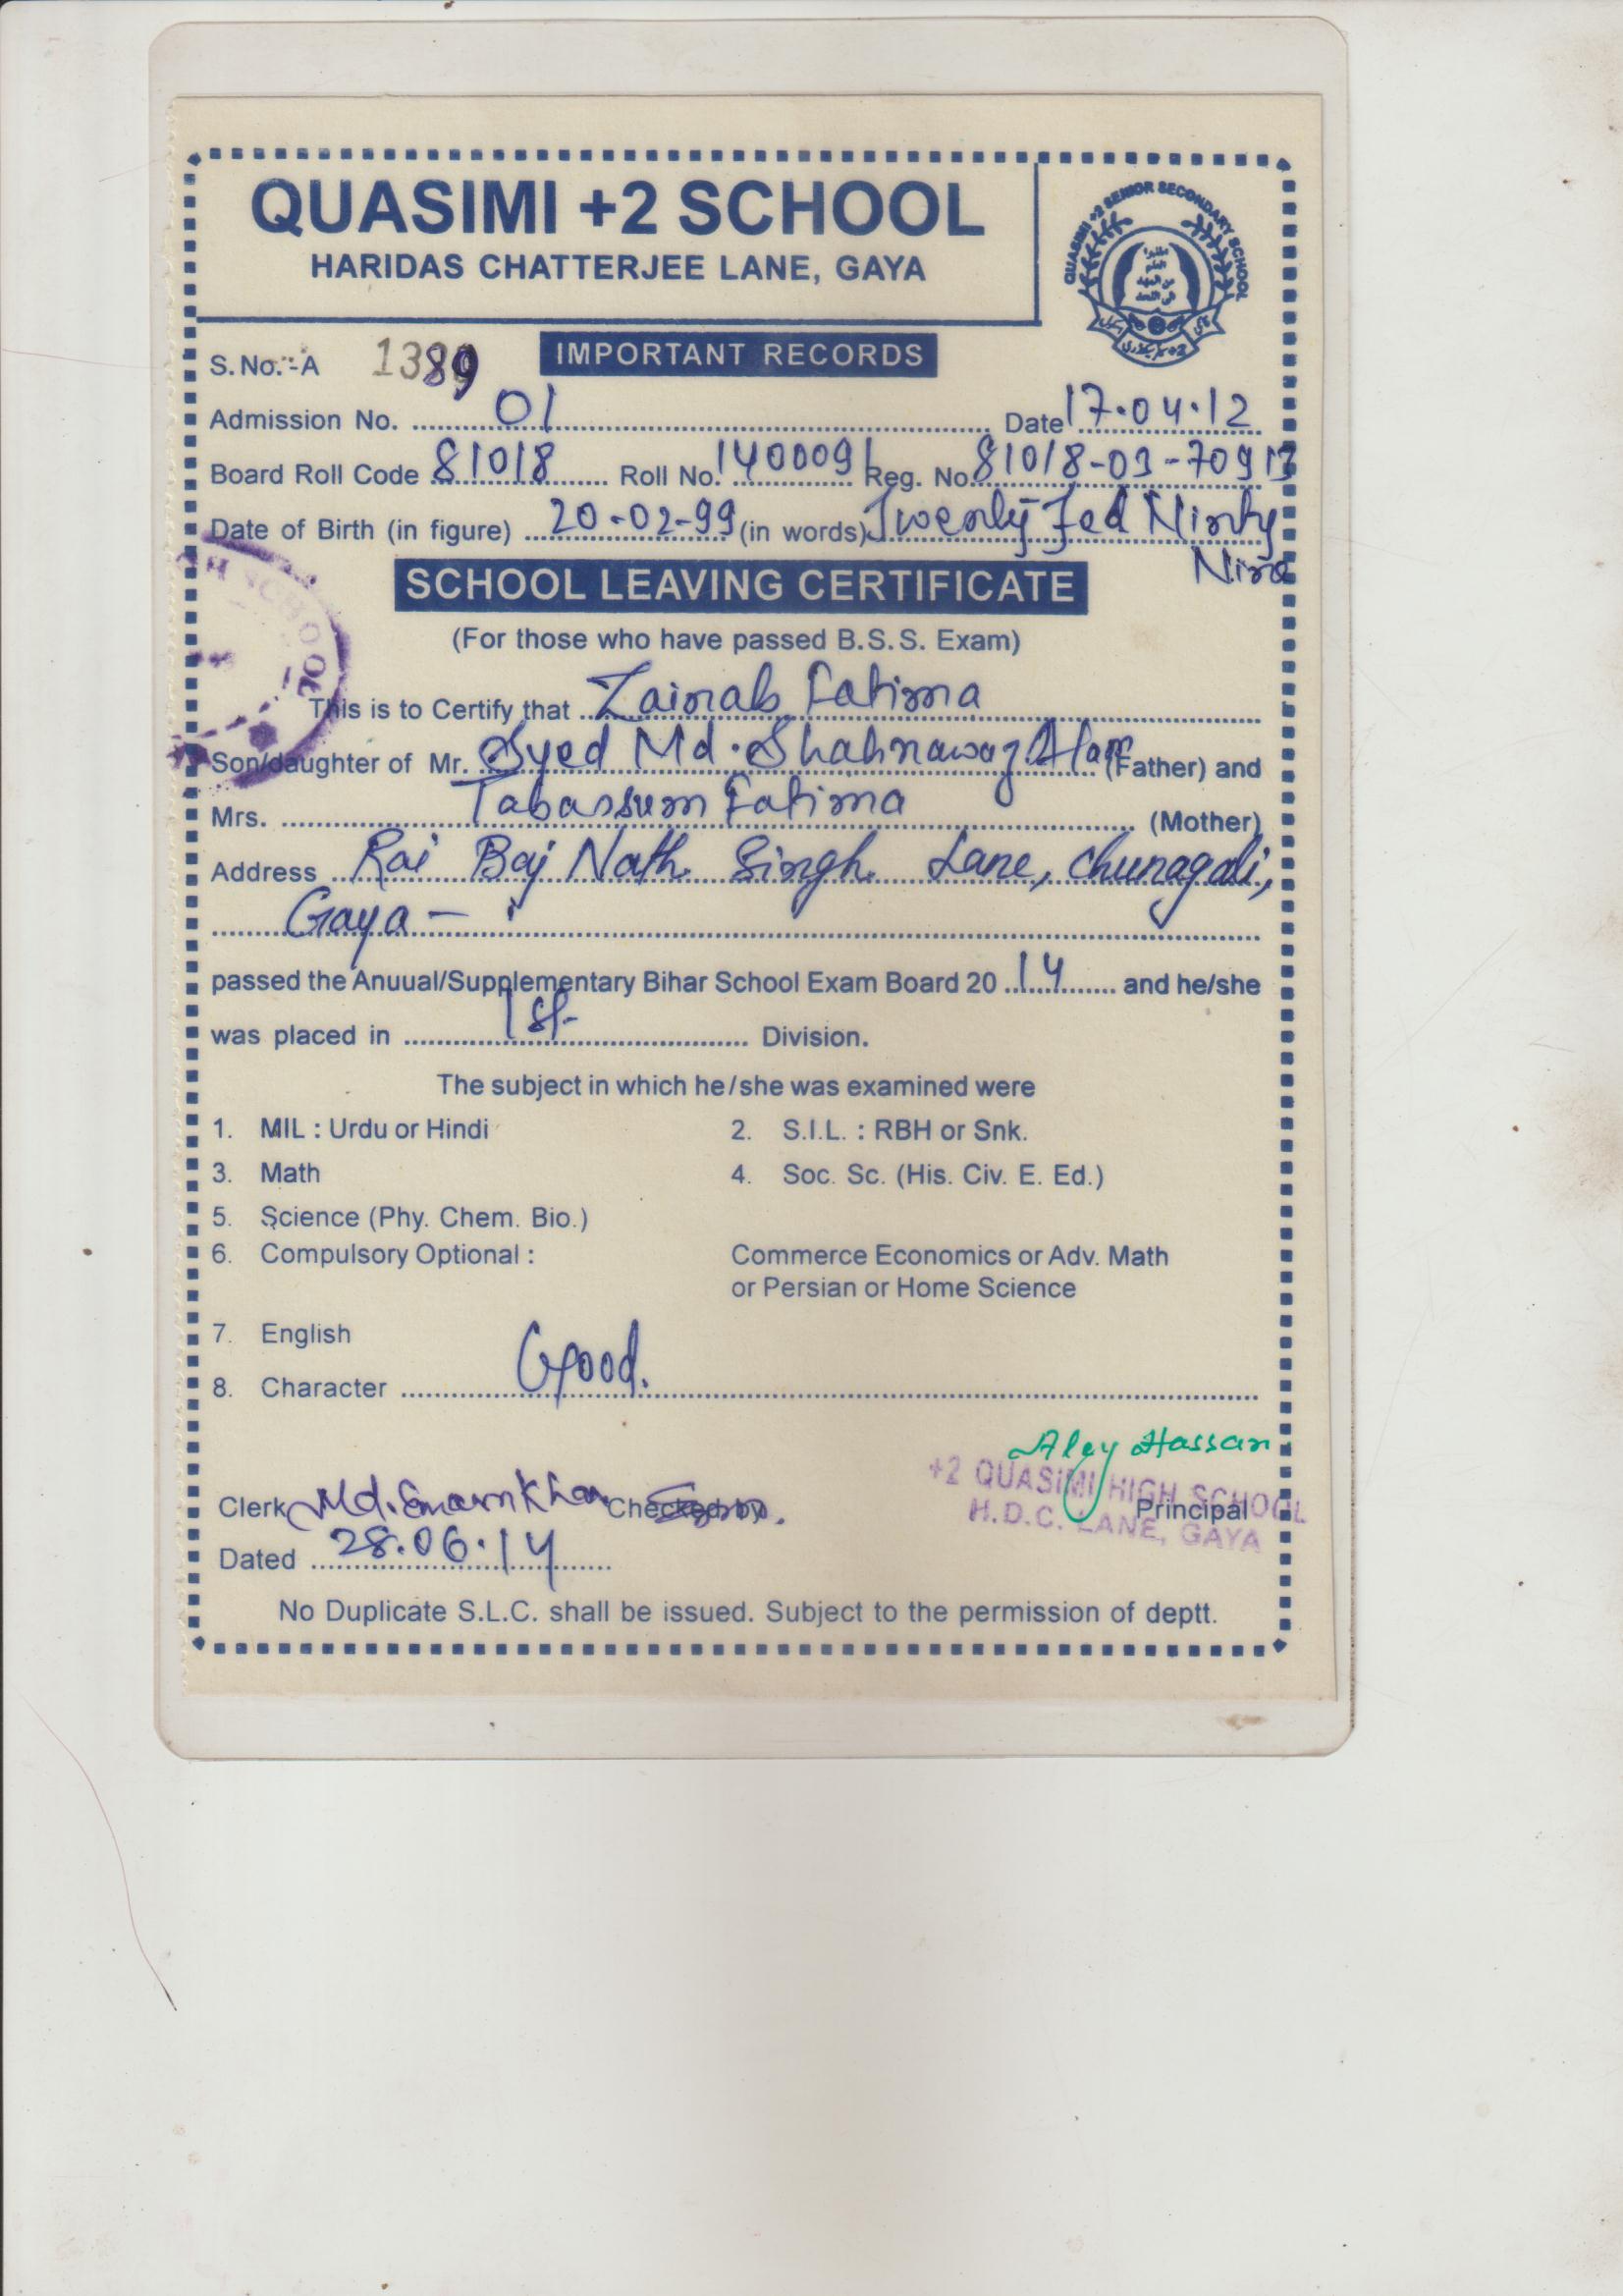 QUASIMI +2 SCHOOL
HARIDAS CHATTERJEE LANE, GAYA
QUASIMI +2 SENIOR SECONDARY SCHOOL
S. No.-A 1389 IMPORTANT RECORDS
Admission No. 01 Date 17.04.12
Board Roll Code 81018 Roll No. 1400091 Reg. No. 81018-03-70913
Date of Birth (in figure) 20-02-99 (in words) Twenty Feb Ninty
Nine
SCHOOL LEAVING CERTIFICATE
(For those who have passed B.S.S. Exam)
This is to Certify that Zainab Fatima
Son/daughter of Mr. Syed Md. Shahnawaz Alam (Father) and
Mrs. Tabassum Fatima (Mother)
Address Rai Baj Nath Singh Lane, Chunagali,
Gaya -
passed the Anuual/Supplementary Bihar School Exam Board 20 14 and he/she
was placed in 1st Division.
The subject in which he/she was examined were
1. MIL : Urdu or Hindi 2. S.I.L. : RBH or Snk.
3. Math 4. Soc. Sc. (His. Civ. E. Ed.)
5. Science (Phy. Chem. Bio.)
6. Compulsory Optional : Commerce Economics or Adv. Math
or Persian or Home Science
7. English
8. Character Good.
Aley Hassan
+2 QUASIMI HIGH SCHOOL
Clerk Md. Khan Checked by Principal
H.D.C. LANE, GAYA
Dated 28.06.14
No Duplicate S.L.C. shall be issued. Subject to the permission of deptt.